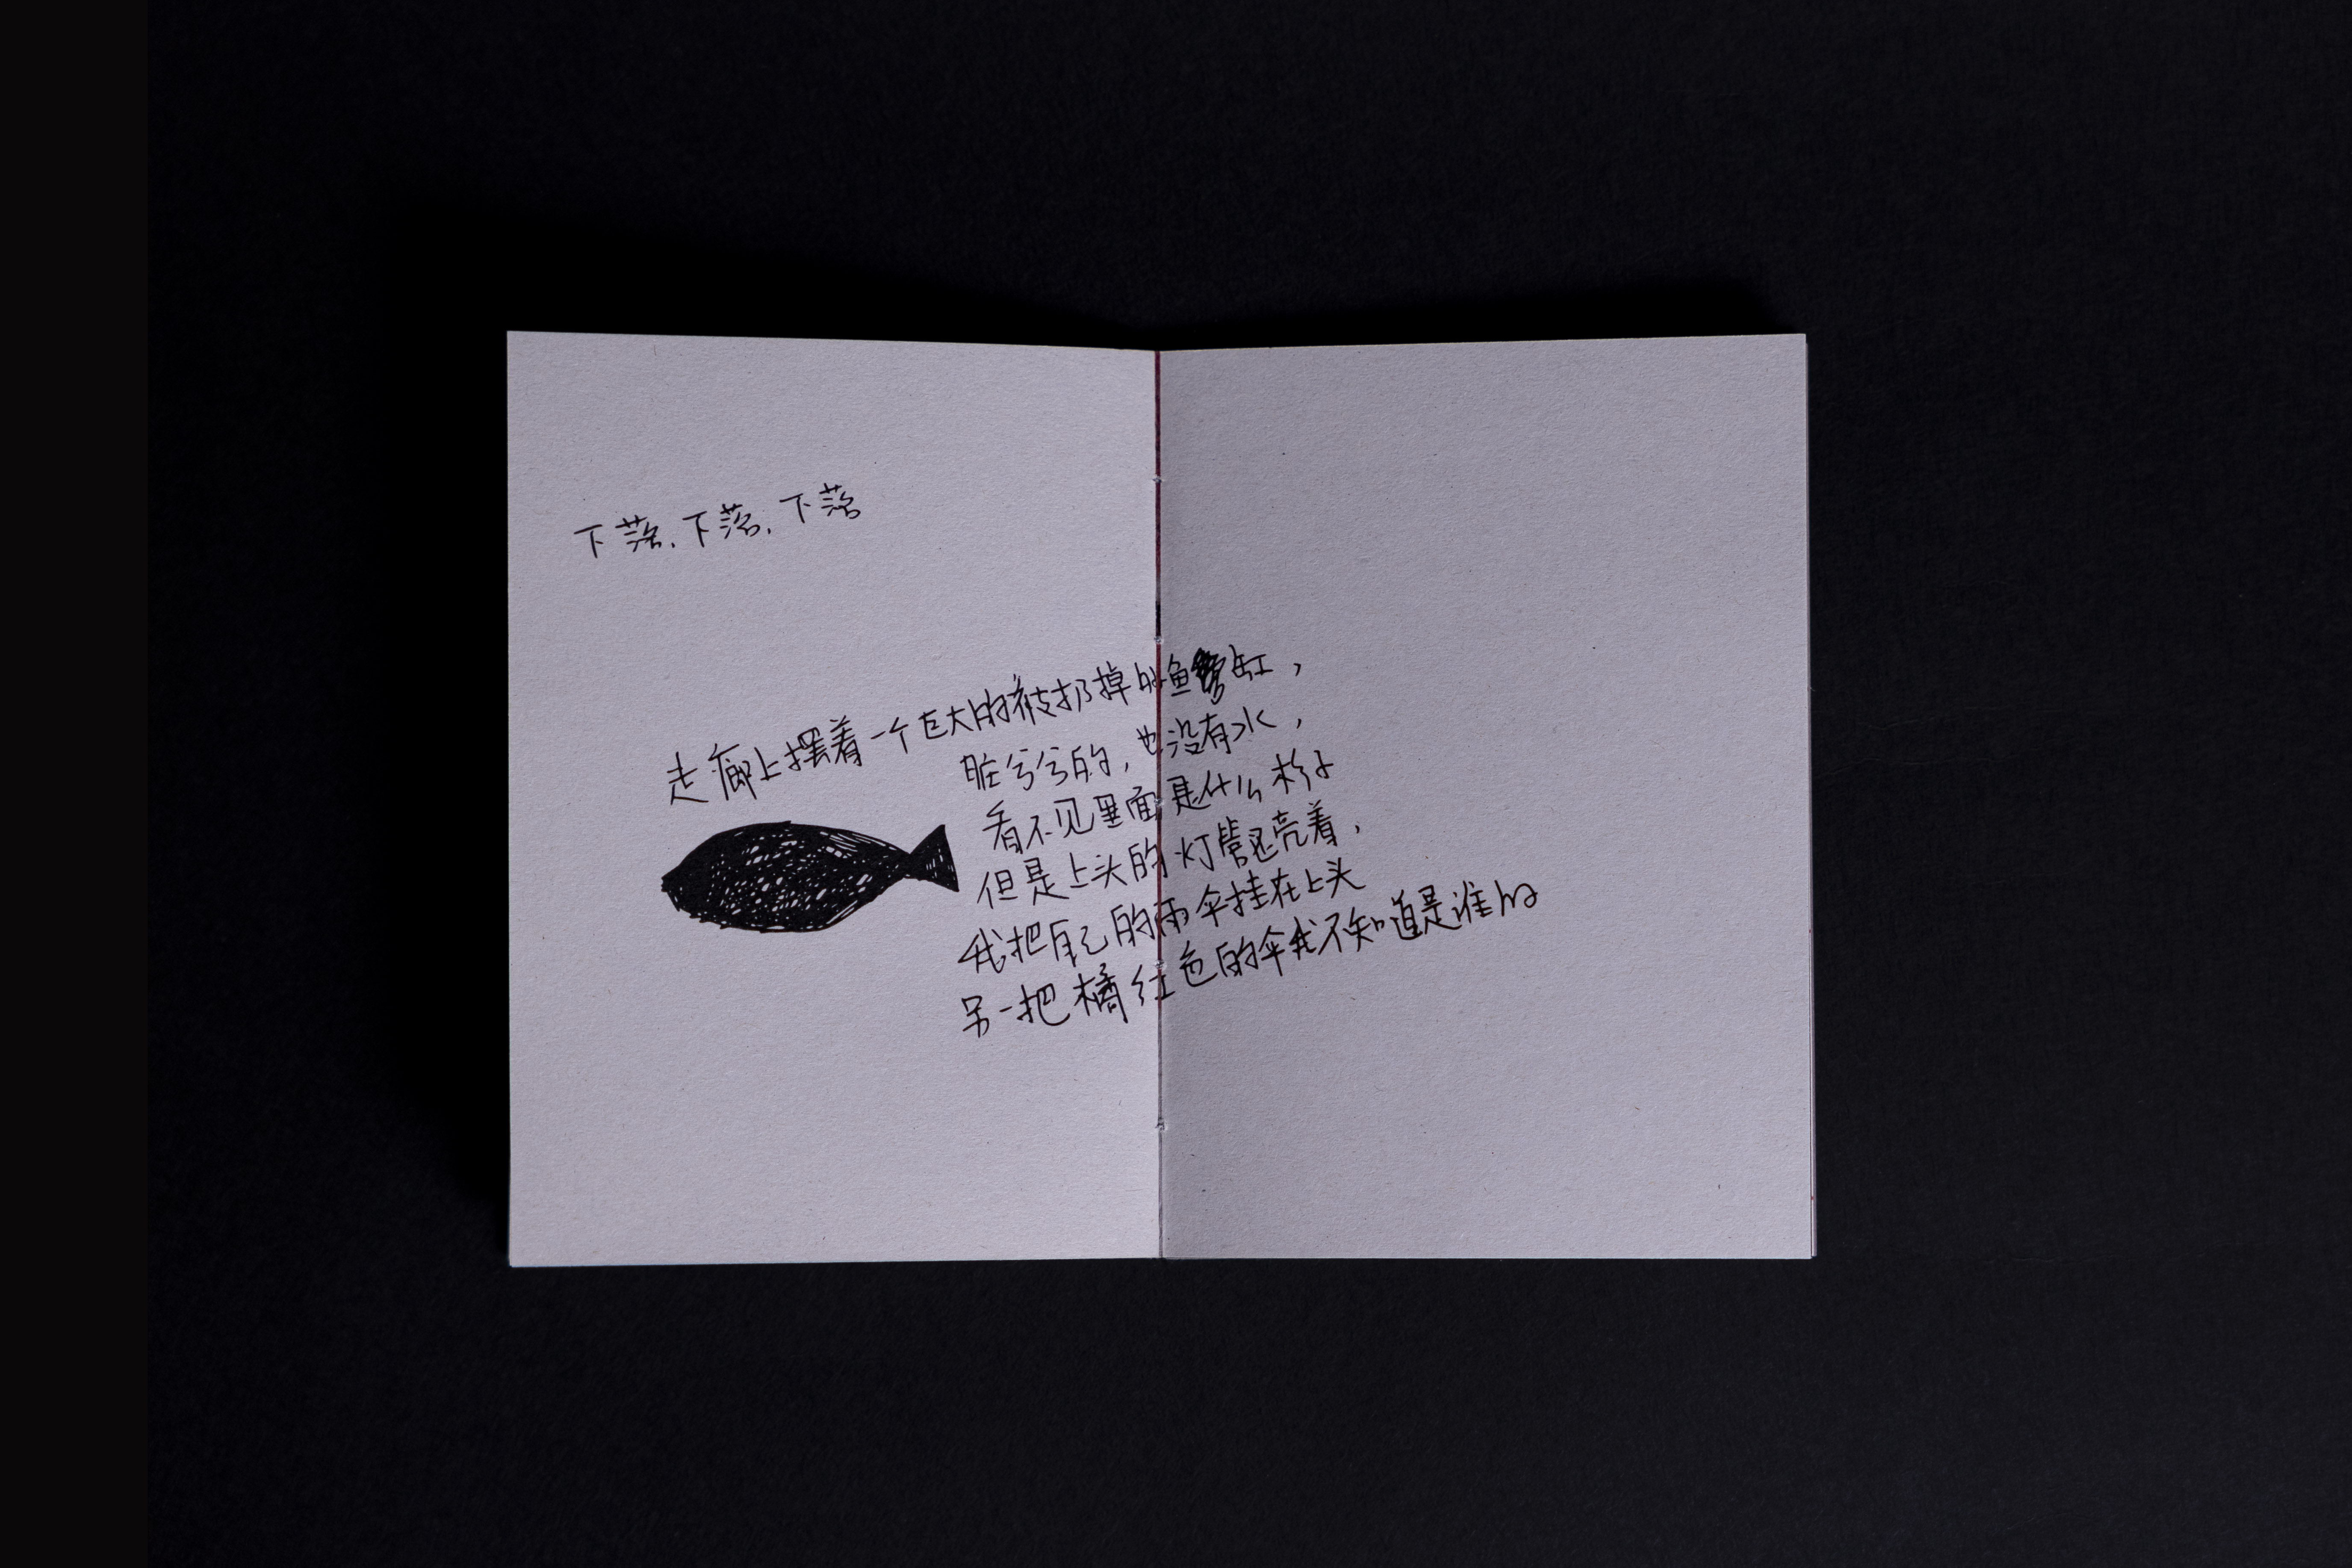 下落,下落,下落
走廊上摆着一个巨大的被扔掉的鱼缸,
脏兮兮的,也没有水,
看不见里面是什么样子
但是上头的灯管还亮着,
我把自己的雨伞挂在上头
另一把橘红色的伞我不知道是谁的